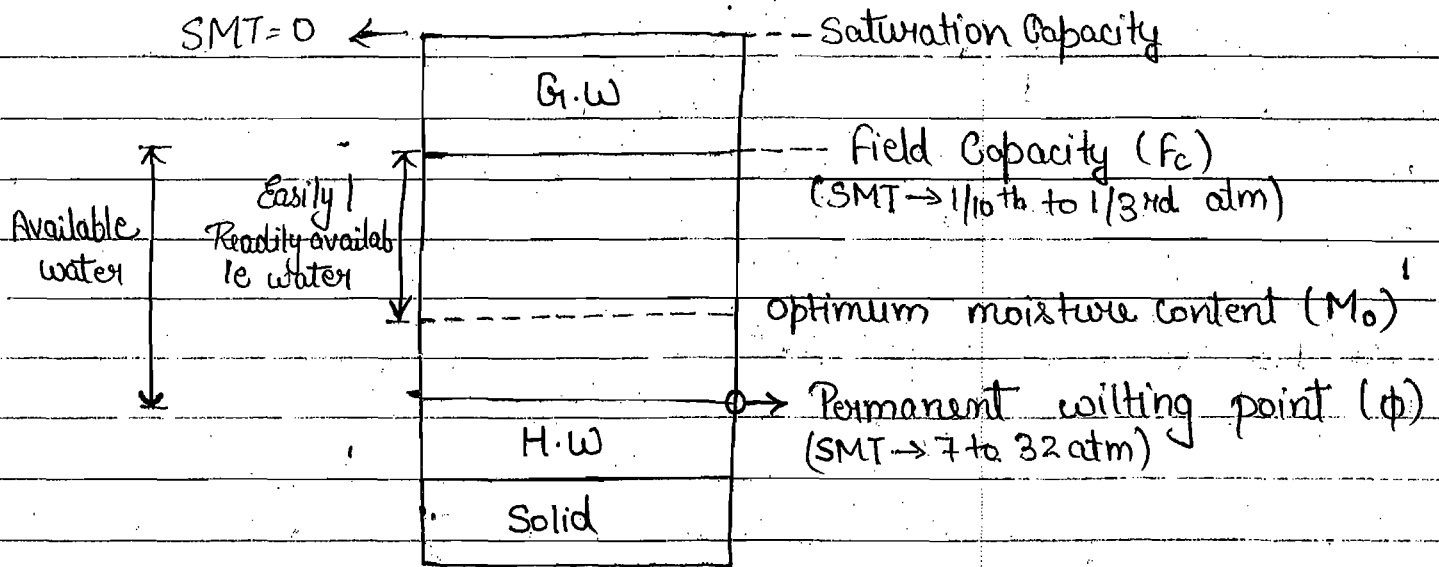 SMT=0 ← -- Saturation Capacity
G.W
Field Capacity (Fc)
(SMT→1/10th to 1/3rd atm)
Easily /
Readily availab
le water
Available
water
optimum moisture content (Mo)
Permanent wilting point (ϕ)
(SMT→7 to 32 atm)
H.W
Solid